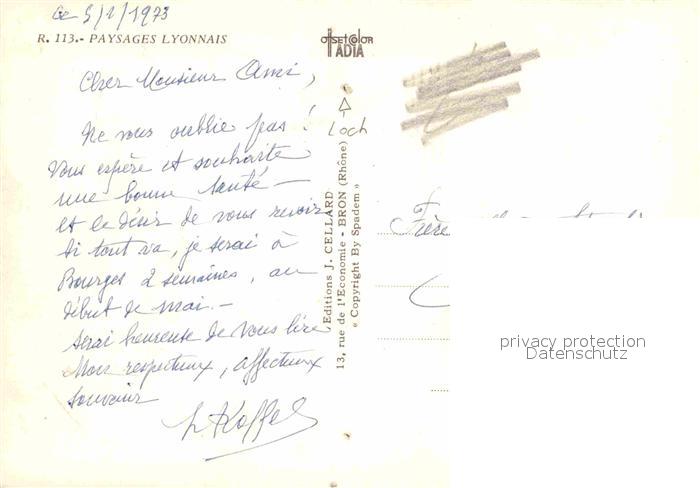 Ce 5/1/1973
R. 113.- PAYSAGES LYONNAIS
offsetcolor
ADIA
Cher Monsieur Ami,
Ne vous oublie pas !
Loch
Vous espère et souhaite
une bonne santé —
et le désir de vous revoir
Si tout va, je serai à
Bourges 2 semaines, au
début de mai. —
Serai heureuse de vous lire
Mon respectueux, affectueux
souvenir
Editions J. CELLARD
13, rue de l'Economie - BRON (Rhône)
« Copyright By Spadem »
Frère
privacy protection
Datenschutz